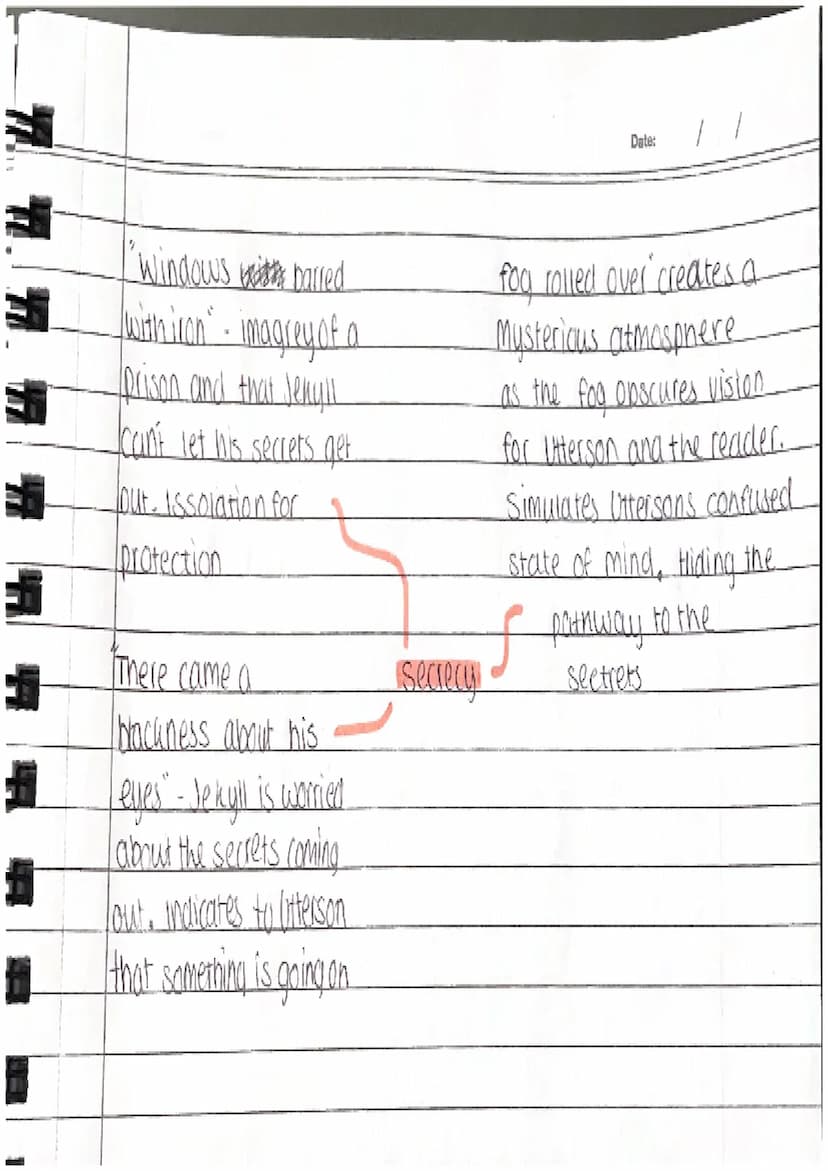 Date: / /
"Windows barred
with iron" - imagrey of a
prison and that Jekyll
can't let his secrets get
out. Issolation for
protection
fog rolled over" creates a
mysterious atmosphere
as the fog obscures vision
for Utterson and the reader.
Simulates Uttersons confused
state of mind. Hiding the
pathway to the
sectrets
secrecy
"There came a
blackness about his
eyes" - Jekyll is worried
about the secrets coming
out. Indicates to Utterson
that something is going on